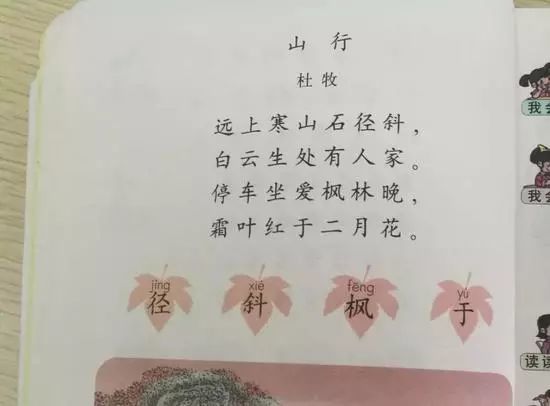 山行
杜牧
远上寒山石径斜，
白云生处有人家。
停车坐爱枫林晚，
霜叶红于二月花。
jìng xié fēng yú
径 斜 枫 于
我会
我会
读读